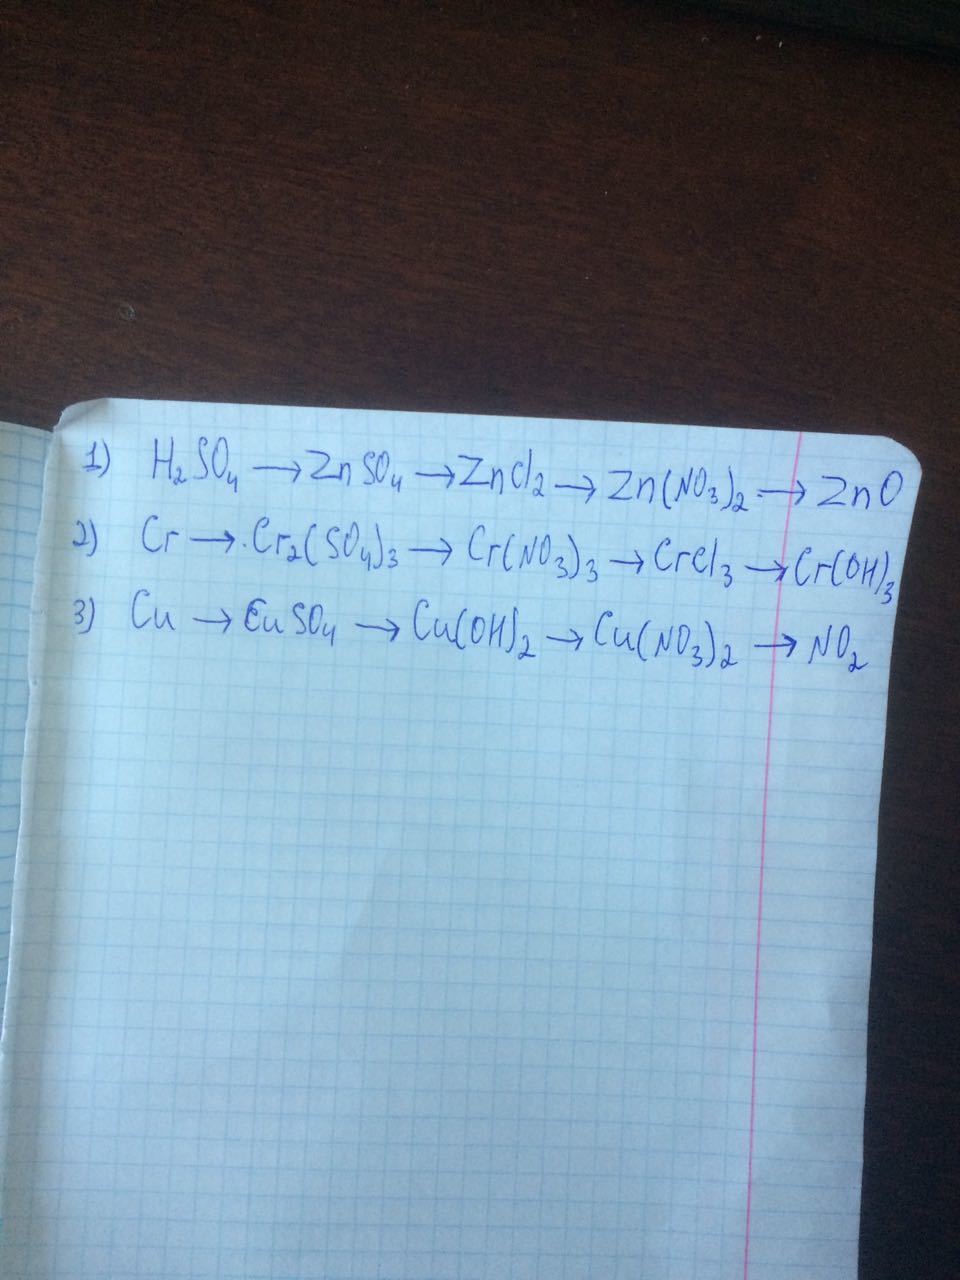 1) H₂SO₄ → ZnSO₄ → ZnCl₂ → Zn(NO₃)₂ → ZnO
2) Cr → Cr₂(SO₄)₃ → Cr(NO₃)₃ → CrCl₃ → Cr(OH)₃
3) Cu → CuSO₄ → Cu(OH)₂ → Cu(NO₃)₂ → NO₂